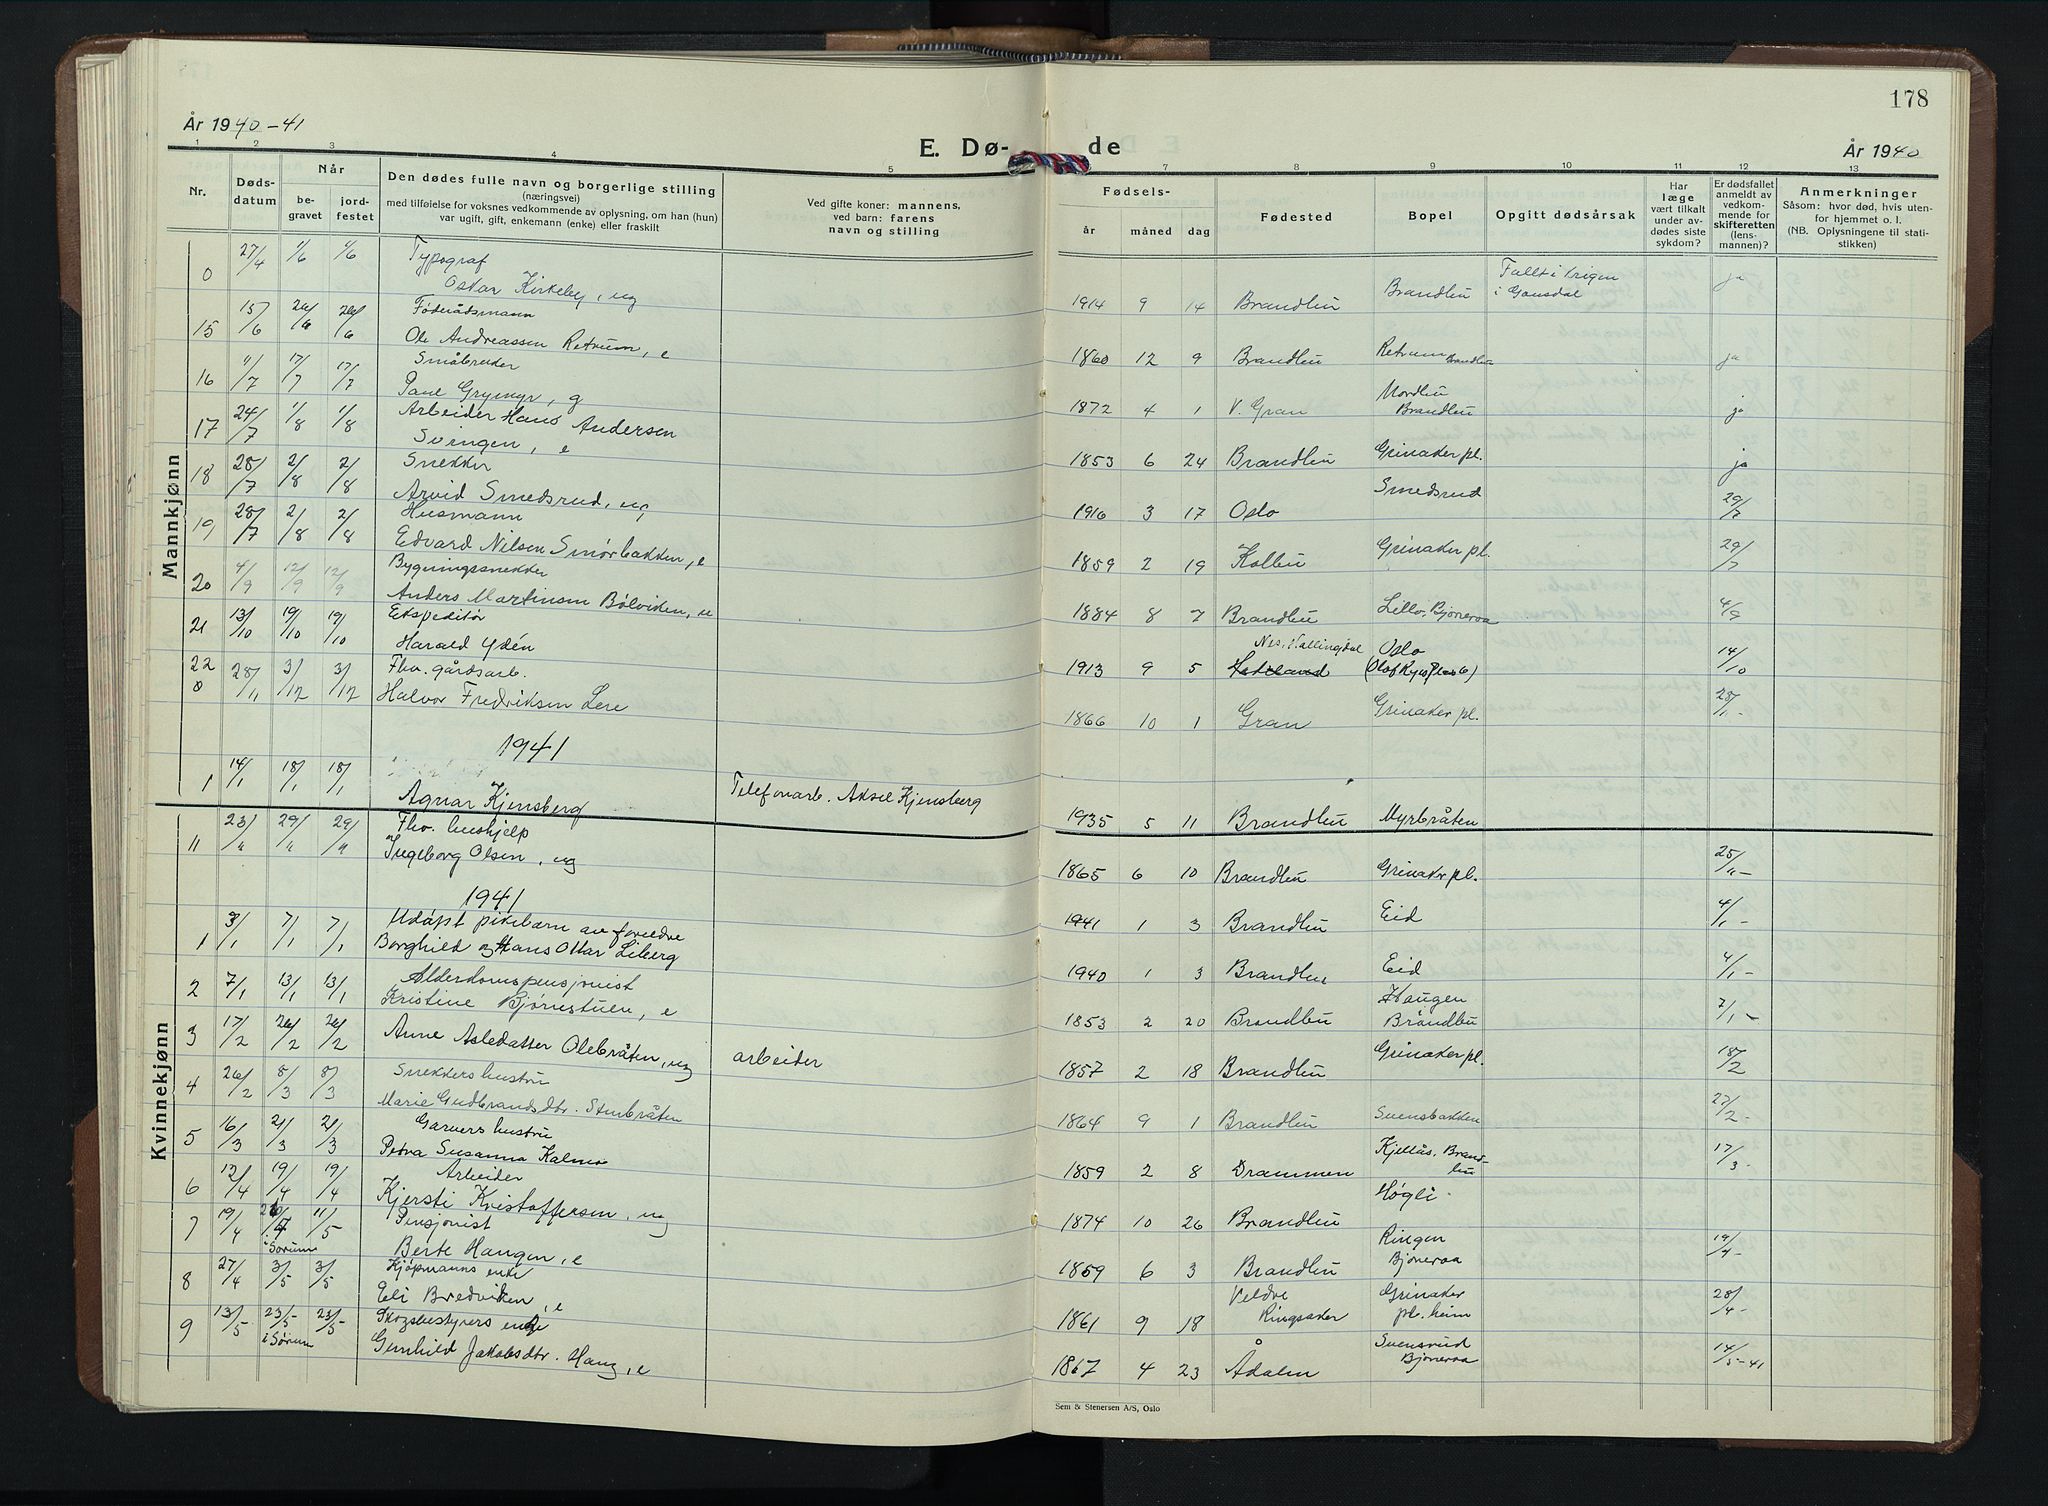 178
År 1940-41
E. Dø- de
År 1940
1 2 3 4 5 7 8 9 10 11 12 13
Nr.
Døds-
datum
Når
be-
gravet
jord-
festet
Den dødes fulle navn og borgerlige stilling
(næringsvei)
med tilføielse for voksnes vedkommende av oplysning, om han (hun)
var ugift, gift, enkemann (enke) eller fraskilt
Ved gifte koner: mannens,
ved barn: farens
navn og stilling
Fødsels-
år måned dag
Fødested
Bopel
Opgitt dødsårsak
Har
læge
vært tilkalt
under av-
dødes siste
sykdom?
Er dødsfallet
anmeldt av
vedkom-
mende for
skifteretten
(lens-
mannen)?
Anmerkninger
Såsom: hvor død, hvis uten-
for hjemmet o. l.
(NB. Oplysningene til stati-
stikken)
Mannkjønn
0 27/4 1/6 1/6 Typograf
Oskar Kirkeby, ug 1914 9 14 Brandbu Brandbu Fallt i krigen
i Gausdal ja
15 15/6 26/6 26/6 Føderådsmann
Ole Andreassen Retrum, e 1860 12 9 Brandbu Retrum Brandbu ja
16 11/7 17/7 17/7 Småbruker
Paul Grymyr, g 1872 4 1 V. Gran Nordbu
Brandbu ja
17 24/7 1/8 1/8 Arbeider Hans Andersen
Svingen, e 1853 6 24 Brandbu Grinaker pl. ja
18 28/7 2/8 2/8 Snekker
Arvid Smedsrud, ug 1916 3 17 Oslo Smedsrud 29/7
19 28/7 2/8 2/8 Husmann
Edvard Nilsen Smørbakken, e 1859 2 19 Kolbu Grinaker pl. 29/7
20 4/9 12/9 12/9 Bygningssnekker
Anders Martinsen Bølviken, e 1884 8 7 Brandbu Lillo, Bjoneroa 4/9
21 13/10 19/10 19/10 Ekspeditør
Harald Ydén 1913 9 5 Nes, Hallingdal Oslo
(Olaf Ryes Pl. 6) 14/10
22 28/11 3/12 3/12 Fhv. gårdsarb.
Halvor Fredriksen Lere 1866 10 1 Gran Grinaker pl.
1941
1 14/1 18/1 18/1
Agnar Kjensberg Telefonarb. Aksel Kjensberg 1935 5 11 Brandbu Myrbråten
Kvinnekjønn
11 23/11 29/11 29/11 Fhv. hushjelp
Ingeborg Olsen, ug 1865 6 10 Brandbu Grinaker pl. 25/11-
1941
1 3/1 7/1 7/1 Udøpt pikebarn av foreldre
Borghild og Hans Ottar Liberg 1941 1 3 Brandbu Eid 4/1-
1940 1 3 Brandbu Eid 4/1-
2 7/1 13/1 13/1 Alderdomspensjonist
Kristine Bjørnestuen, e 1853 2 20 Brandbu Haugen
Brandbu 7/1-
3 17/2 26/2 26/2 Anne Asledatter Olebråten, ug arbeider 1857 2 18 Brandbu Grinaker pl. 18/2
4 26/2 8/3 8/3 Snekkers hustru
Marie Gudbrandsdtr. Stenbråten 1864 9 1 Brandbu Svensbakken 27/2-
5 16/3 21/3 21/3 Garvers hustru
Petra Susanna Kalmo 1859 2 8 Drammen Kjellås, Brand-
bu 17/3-
6 12/4 19/4 19/4 Arbeider
Kjersti Kristoffersen, ug 1874 10 26 Brandbu Høgli
7 19/4 26/4 11/5 Pensjonist
i Sørum
Berte Haugen, e 1859 6 3 Brandbu Ringen
Bjoneroa 19/4-
8 27/4 3/5 3/5 Kjøpmanns enke
Eli Bredviken, e 1861 9 18 Veldre
Ringsaker Grinaker
pl. heim 28/4-
9 13/5 23/5- 23/5- Skogsbestyrers enke
i Sørum
Gunhild Jakobsdtr. Haug, e 1867 4 23 Ådalen Svensrud
Bjoneroa 14/5-41
Sem & Stenersen A/S, Oslo